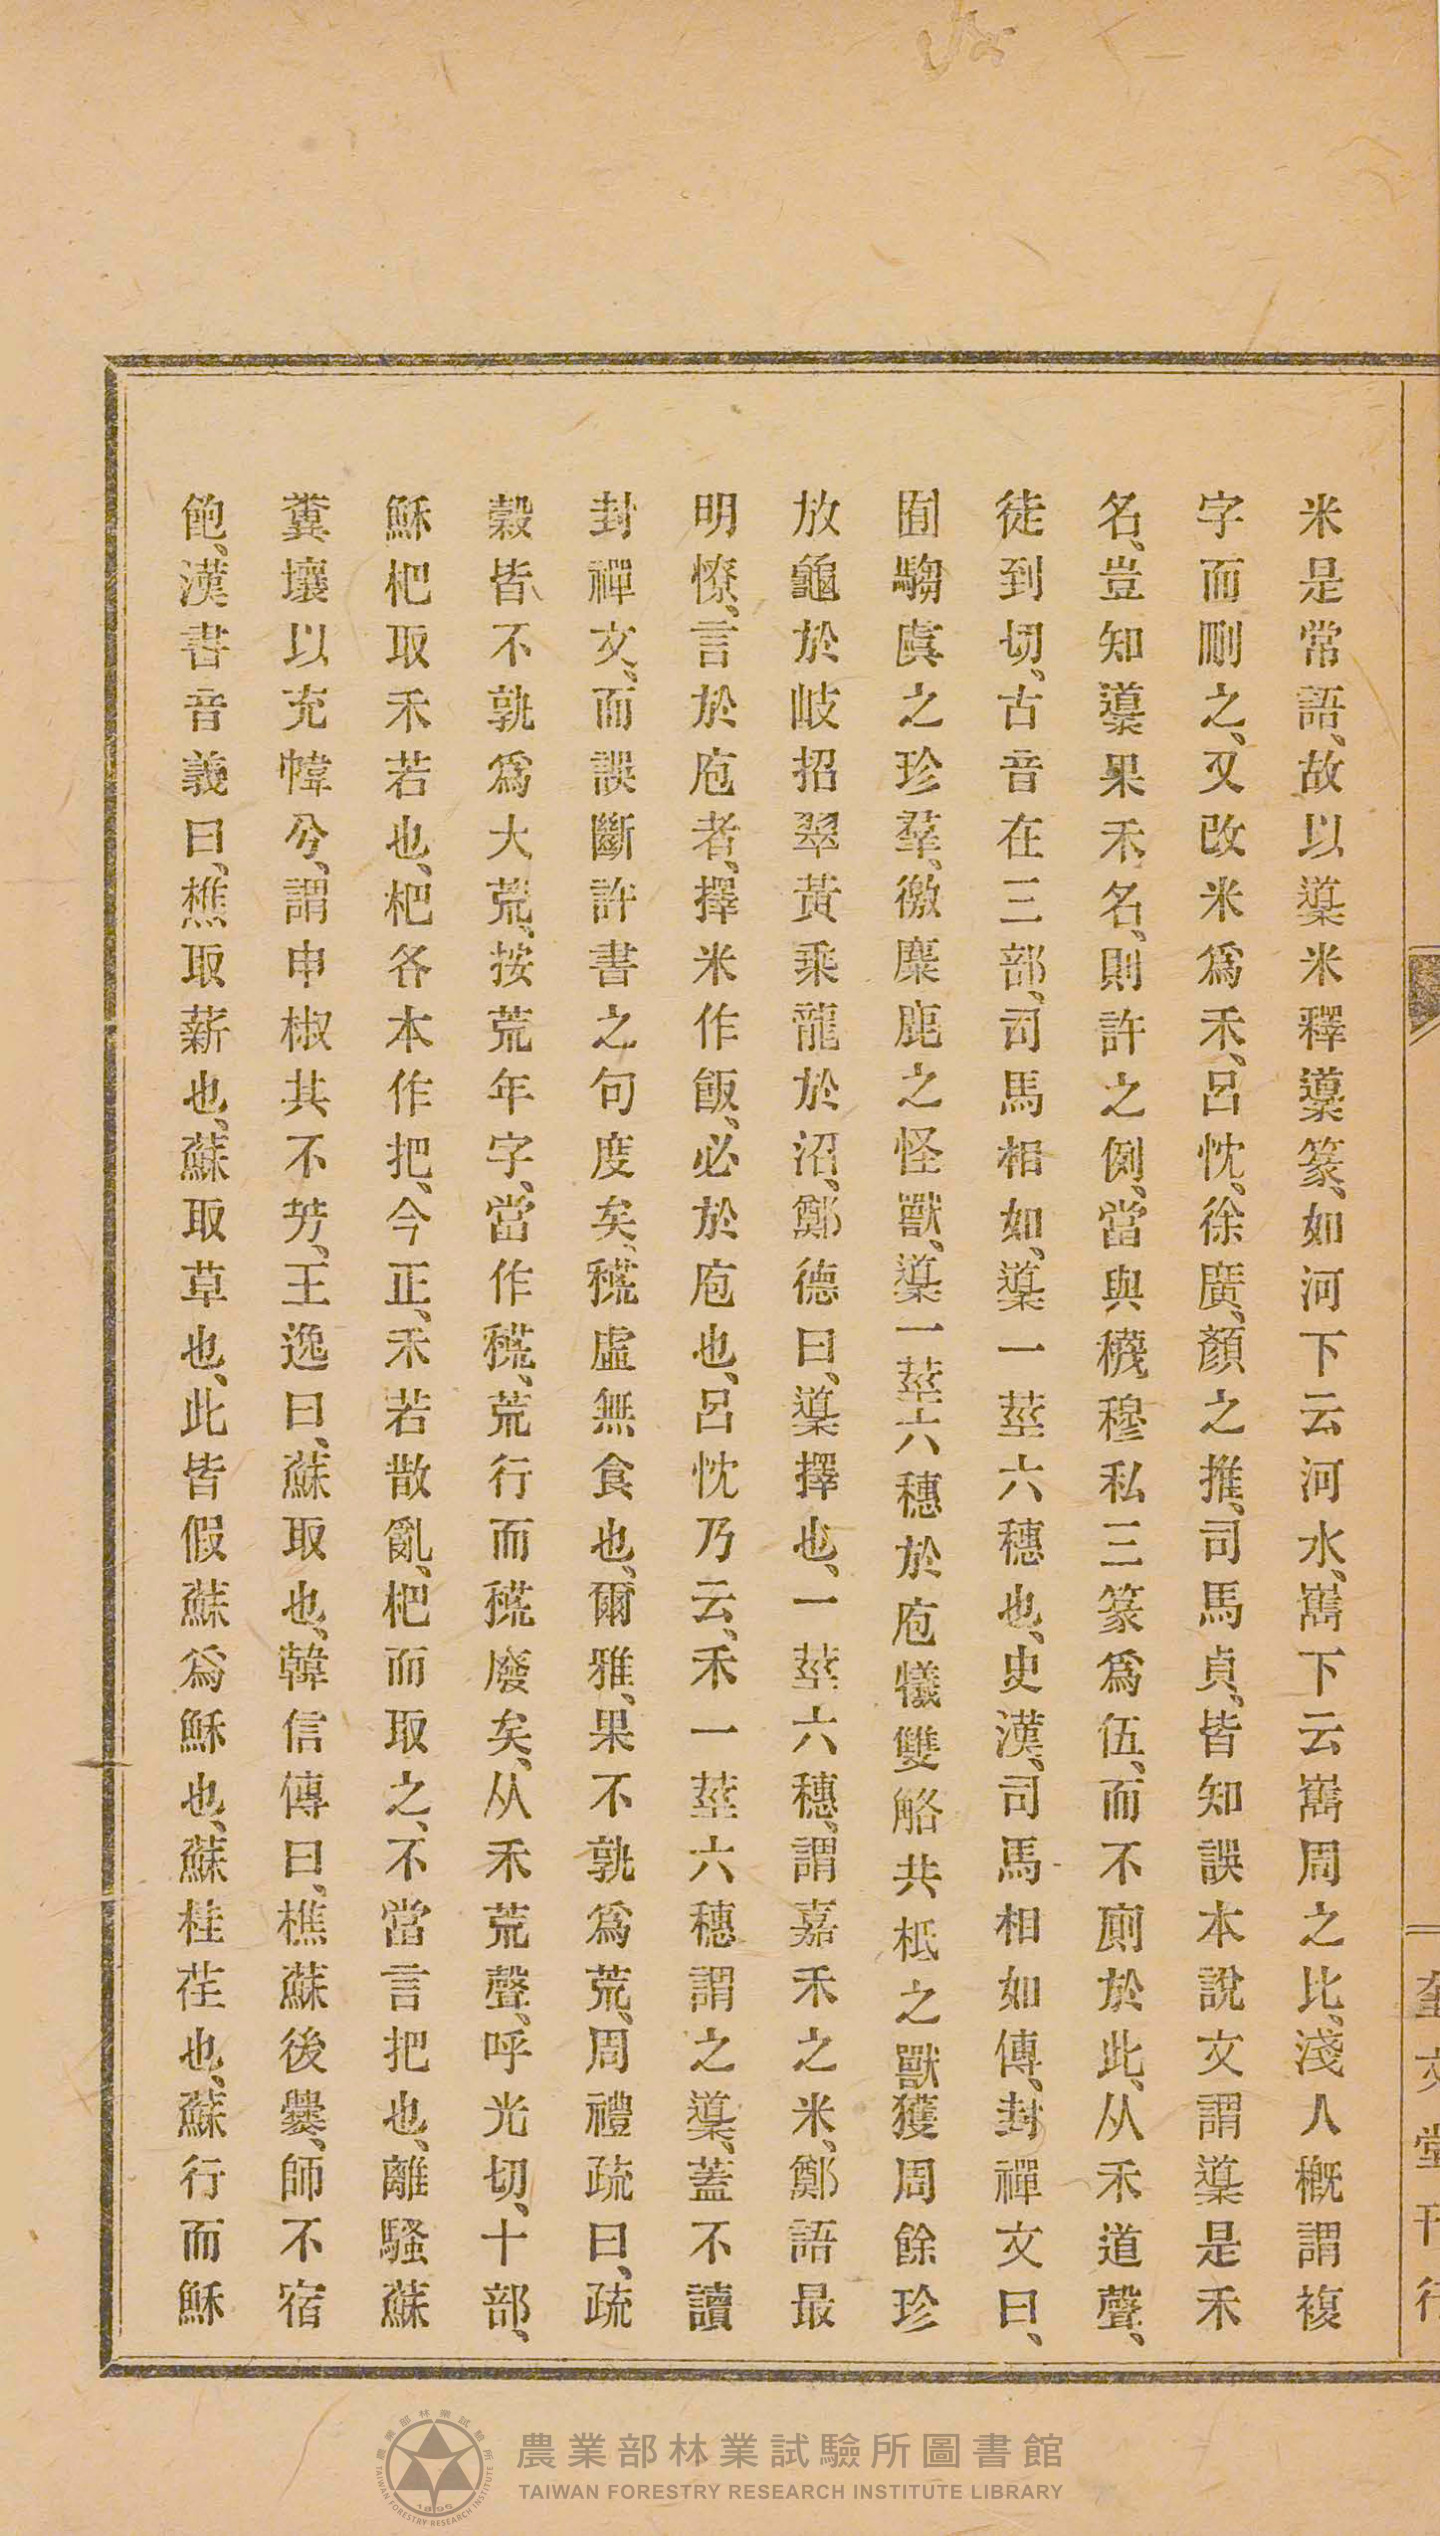 米是常語、故以䆃米釋䆃篆、如河下云河水、嶲下云嶲周之比、淺人概謂複
字而刪之、又改米爲禾、呂忱、徐廣、顏之推、司馬貞、皆知誤本說文謂䆃是禾
名、豈知䆃果禾名、則許之例、當與穖穆私三篆爲伍、而不廁於此、从禾道聲、
徒到切、古音在三部、司馬相如、䆃一莖六穗也、史漢、司馬相如傳、封禪文曰、
囿騶虞之珍羣、徼麋鹿之怪獸、䆃一莖六穗於庖犧雙觡共柢之獸獲周餘珍
放龜於岐招翠黃乘龍於沼、鄭德曰、䆃擇也、一莖六穗、謂嘉禾之米、鄭語最
明憭、言於庖者、擇米作飯、必於庖也、呂忱乃云、禾一莖六穗謂之䆃、蓋不讀
封禪文、而誤斷許書之句度矣、穅虛無食也、爾雅、果不孰爲荒、周禮疏曰、疏
穀皆不孰爲大荒、按荒年字、當作穅、荒行而穅廢矣、从禾荒聲、呼光切、十部、
穌杷取禾若也、杷各本作把、今正、禾若散亂、杷而取之、不當言把也、離騷蘇
糞壤以充幃兮、謂申椒其不芳、王逸曰、蘇取也、韓信傳曰、樵蘇後爨、師不宿
飽、漢書音義曰、樵取薪也、蘇取草也、此皆假蘇爲穌也、蘇桂荏也、蘇行而穌
奎文堂刊行
農業部林業試驗所圖書館
TAIWAN FORESTRY RESEARCH INSTITUTE LIBRARY